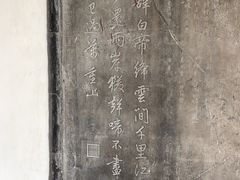 辭白帝綵雲間千里江
還兩岸猨聲啼不盡
已過萬重山